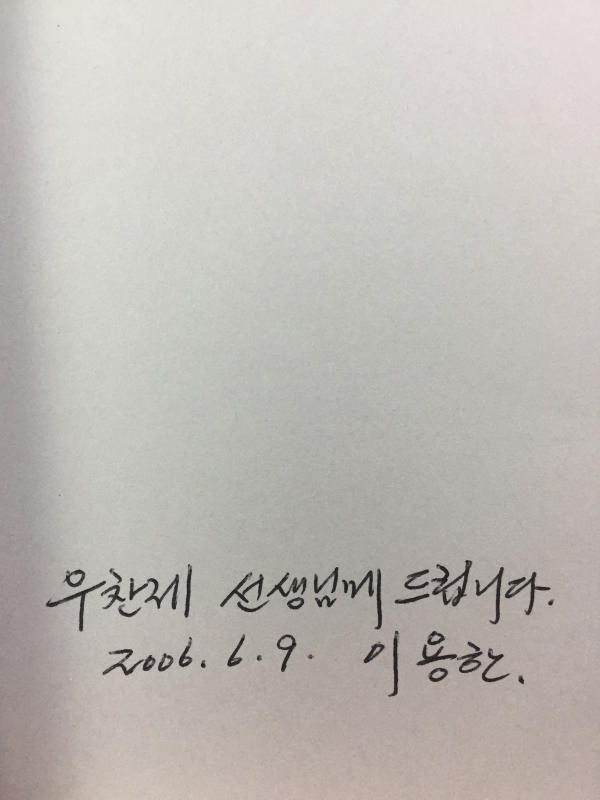 우찬제 선생님께 드립니다.
2006. 6. 9. 이용한.